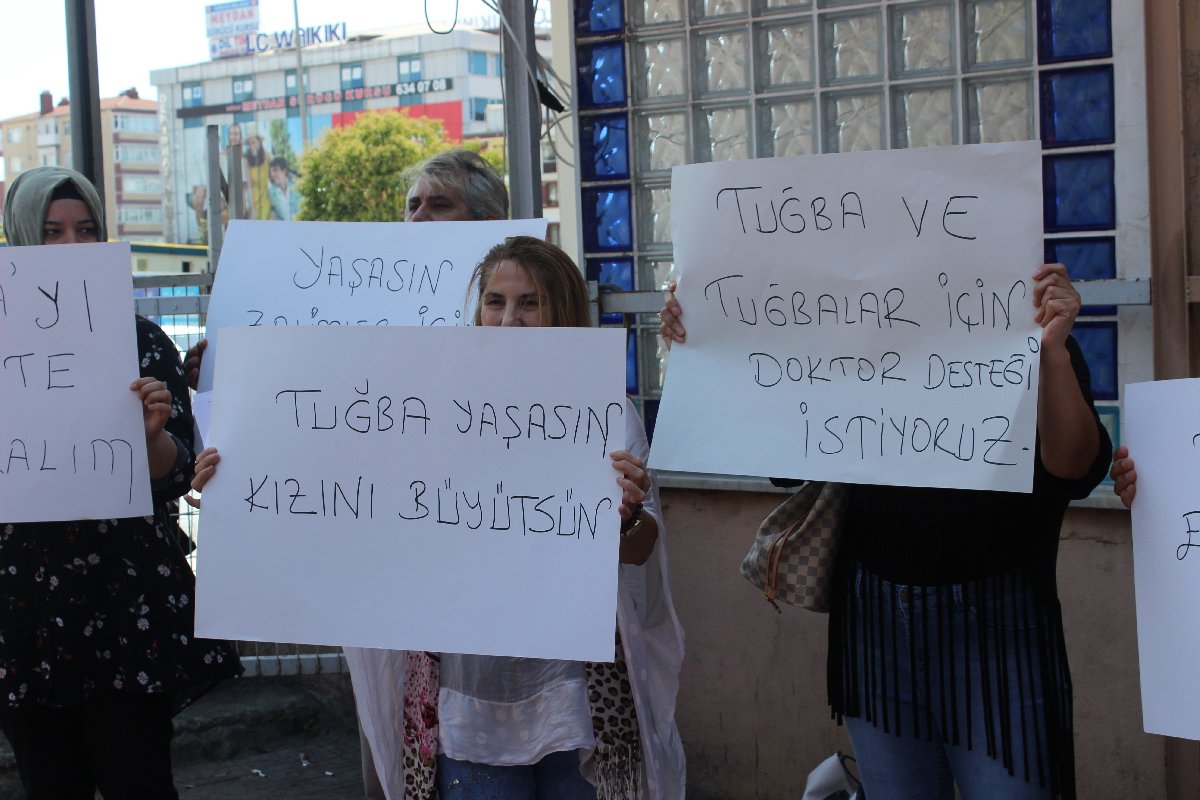 MEYDAN
SÜRÜCÜ KURSU
LC WAIKIKI
MEYDAN SÜRÜCÜ KURSU 634 07 08
'YI
TE
ALIM
YAŞASIN
TUĞBA YAŞASIN
KIZINI BÜYÜTSÜN
TUĞBA VE
TUĞBALAR İÇİN
DOKTOR DESTEĞİ
İSTİYORUZ.